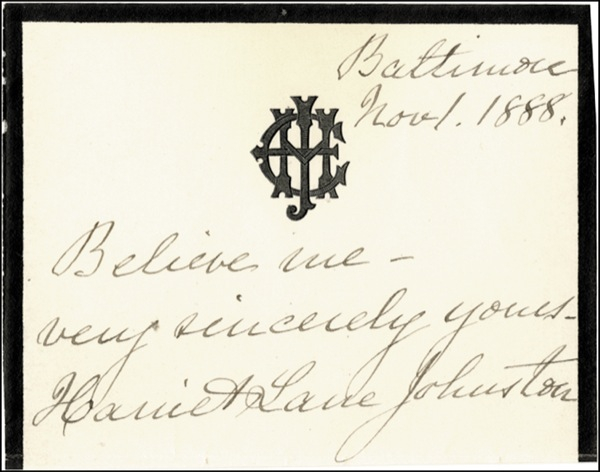 Baltimore
Nov 1. 1888.
Believe me –
very sincerely yours –
Harriet Lane Johnston